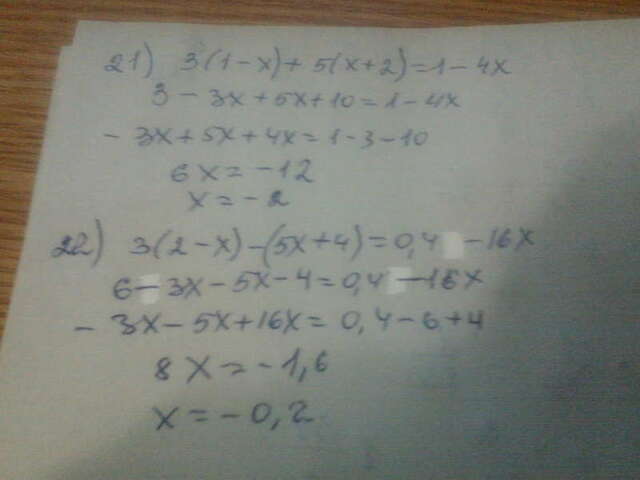 21) 3(1-x)+5(x+2)=1-4x
3-3x+5x+10=1-4x
-3x+5x+4x=1-3-10
6x=-12
x=-2
22) 3(2-x)-(5x+4)=0,4 -16x
6-3x-5x-4=0,4 -16x
-3x-5x+16x=0,4-6+4
8x=-1,6
x=-0,2